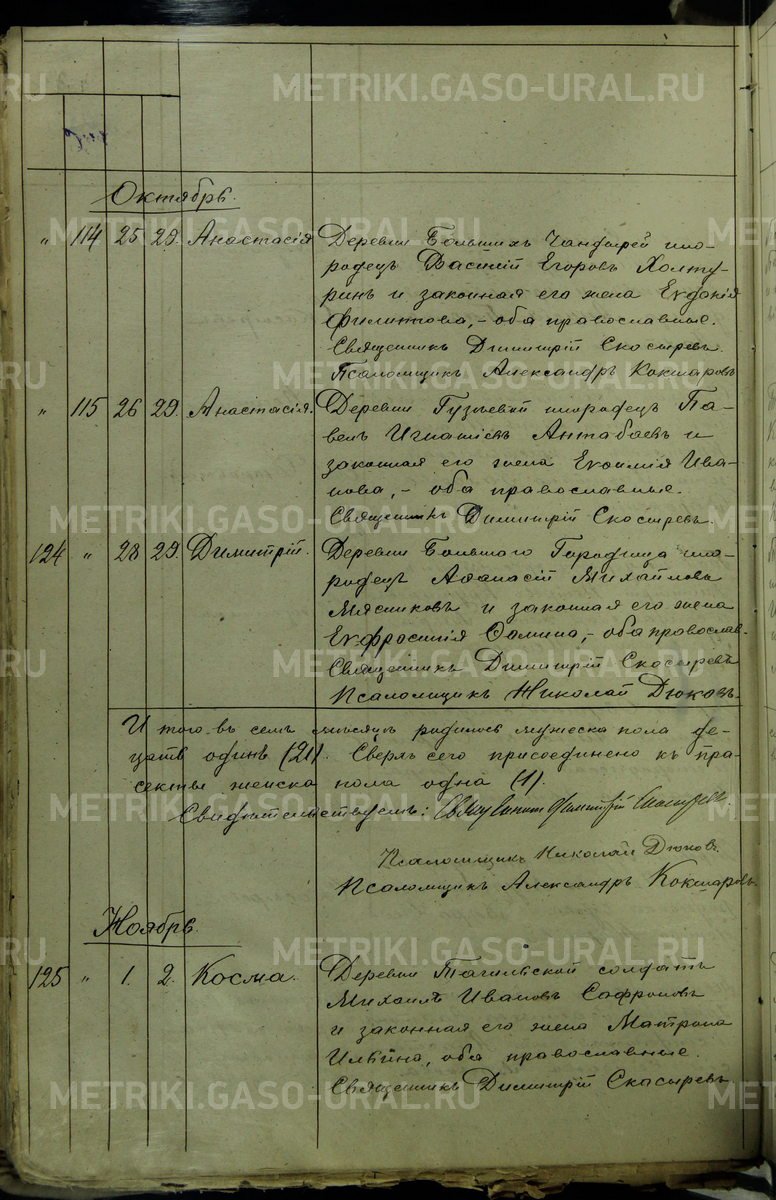 Октябрь.
„ 114 25 29. Анастасія Деревни Большихъ Чандырей ино-
родецъ Василій Егоровъ Халту-
ринъ и законная его жена Евдокія
Филиппова, – оба православные.
Священникъ Димитрій Скосыревъ.
Псаломщикъ Александръ Кокшаровъ
„ 115 26 29. Анастасія. Деревни инородецъ Па-
велъ Игнатіевъ Антабаевъ и
законная его жена Евѳимія Ива-
нова, – оба православные.
Священникъ Димитрій Скосыревъ.
124 „ 28 29. Димитрій. Деревни Большаго Городища ино-
родецъ Аѳанасій Михайловъ
Мясниковъ и законная его жена
Евфросинія Ѳомина, – оба православ.
Священникъ Димитрій Скосыревъ
Псаломщикъ Николай Дюковъ.
Итого въ семъ мѣсяцѣ родилось мужеска пола де-
вять одинъ (21). Сверхъ сего присоединено къ пра-
женска пола одна (1).
Свидѣтельствуемъ: Священникъ Димитрій Скосыревъ.
Псаломщикъ Николай Дюковъ.
Псаломщикъ Александръ Кокшаровъ.
Ноябрь.
125 „ 1. 2. Косма. Деревни Тагильской солдатъ
Михаилъ Ивановъ Сафроновъ
и законная его жена Матрона
Ильина, оба православные.
Священникъ Димитрій Скосыревъ
METRIKI.GASO-URAL.RU